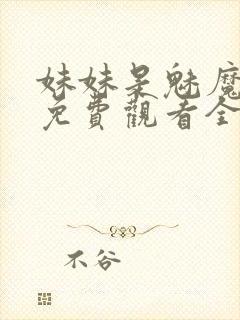 妹妹是魅魔
免費觀看全
不谷